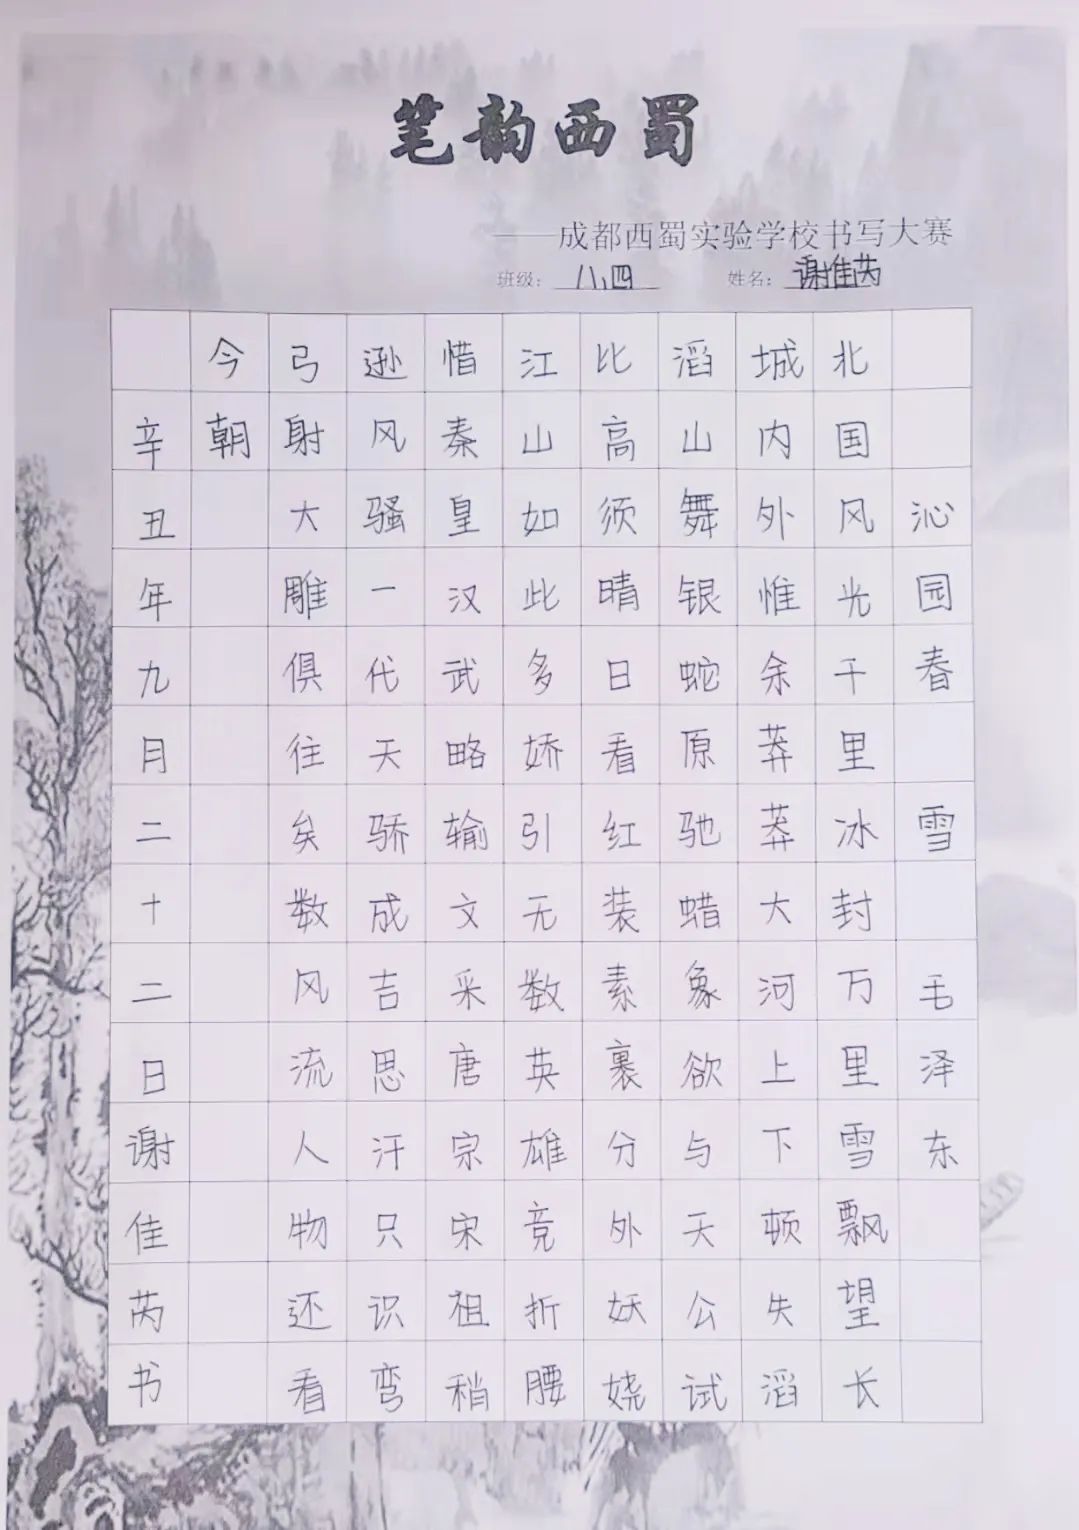 笔韵西蜀
——成都西蜀实验学校书写大赛
班级：八、四 姓名：谢佳芮
沁园春 雪 毛泽东
北国风光千里冰封万里雪飘望长
城内外惟余莽莽大河上下顿失滔
滔山舞银蛇原驰蜡象欲与天公试
比高须晴日看红装素裹分外妖娆
江山如此多娇引无数英雄竞折腰
惜秦皇汉武略输文采唐宗宋祖稍
逊风骚一代天骄成吉思汗只识弯
弓射大雕俱往矣数风流人物还看
今朝
辛丑年九月二十二日谢佳芮书